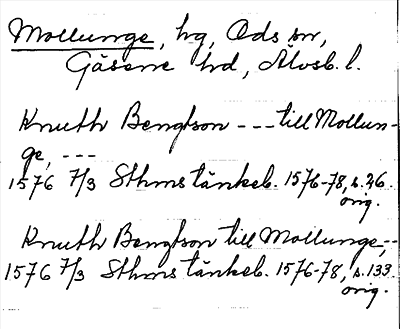 Mollunge, hg, Ods sn,
Gäsene hd, Älvsb. l.
Knuth Bengtson --- till Mollun-
ge, ---
1576 7/3 Sthms tänkeb. 1576-78, s. 26.
orig.
Knuth Bengtson till Mollunge,--
1576 7/3 Sthms tänkeb. 1576-78, s. 133.
orig.